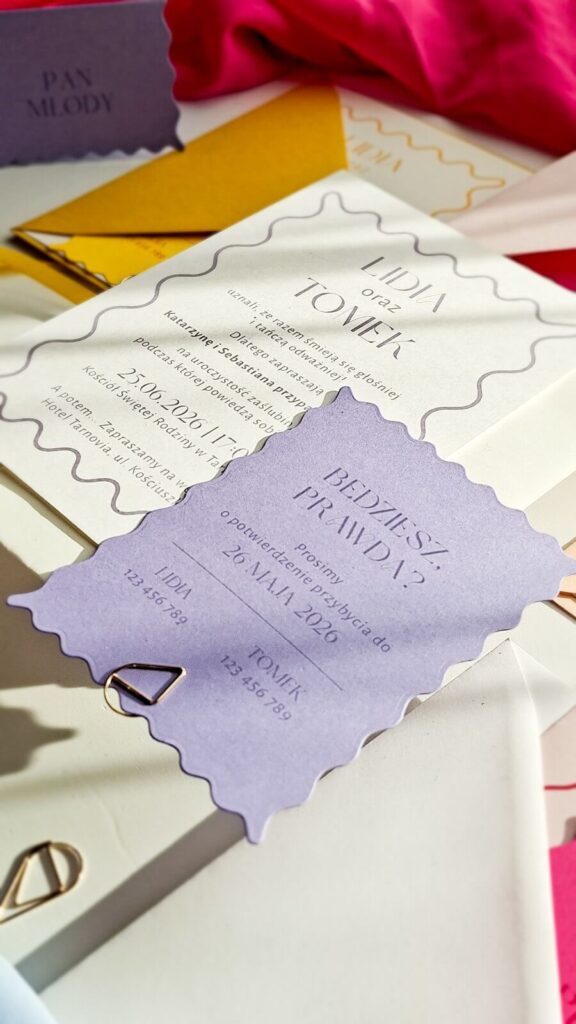 PAN
MŁODY
LIDIA
LIDIA
oraz
TOMEK
uznali, że razem śmieją się głośniej
i tańczą odważniej!
Dlatego zapraszają
Katarzynę i Sebastiana
na uroczystość
podczas której powiedzą
25.06.2026 |
Kościół Świętej Rodziny w
A potem... Zapraszamy na
Hotel Tarnovia, ul.
BĘDZIESZ,
PRAWDA?
Prosimy
o potwierdzenie przybycia do
26 MAJA 2026
LIDIA
123 456 789
TOMEK
123 456 789